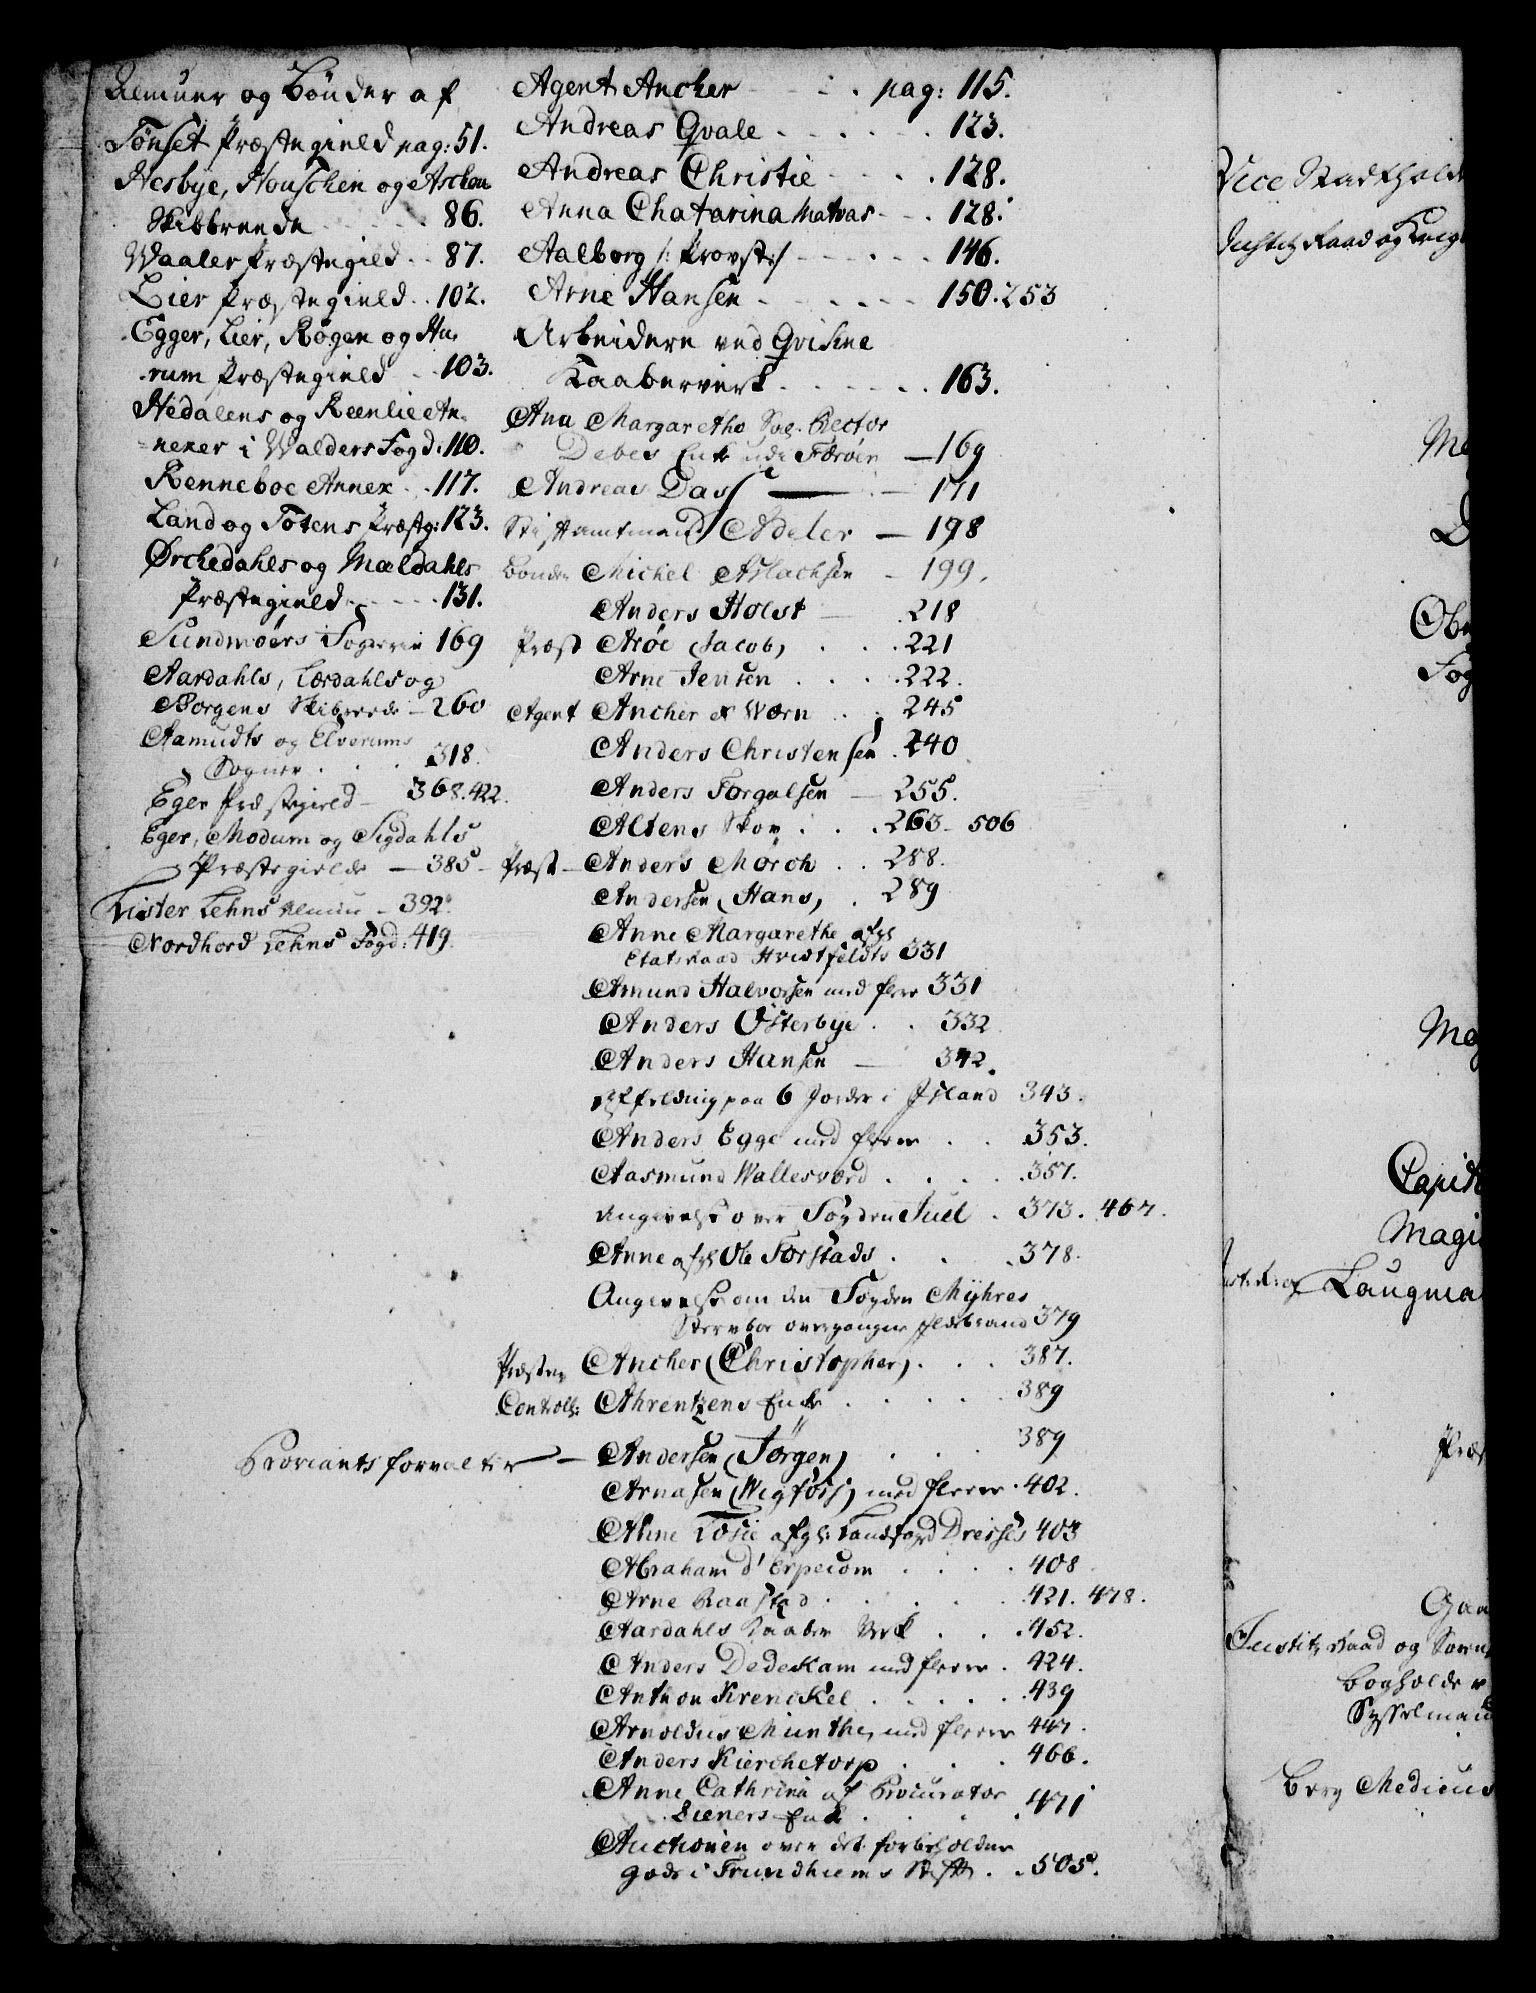 Almuer og Bönder af
Tönset Præstegield pag: 51.
Nesbye, Houschen og Aschou
Skibbreede 86.
Waaler Præstegild 87.
Lier Præstegield 102.
Egger, Lier, Røgen og Hu-
rum Præstegield 103.
Hedalens og Reenlie An-
nexer i Walders Fogd: 110.
Renneboe Annex 117.
Land og Totens Præstg: 123.
Ørchedahls og Mældahls
Præstegield 131.
Sundmöers Fogderie 169
Aardahls, Lærdahls og
Borgens Skibreede 260
Aamudts og Elverums
Sogner 318.
Eger Præstegield 368. 422.
Eger, Modum og Sigdahls
Præstegielde 385
Lister Lehns Almue 392.
Nordhord Lehns Fogd: 419.
Agent Ancher pag: 115.
Andreas Qvale 123.
Andreas Christie 128.
Anna Chatarina Matvas 128.
Aalborg /: Provst :/ 146.
Arne Hansen 150. 253
Arbeidere ved Qvikne
Kaaberverk 163.
Ana Margaretha Sal. Rector
Debes Enke udi Færöen 169
Andreas Dass 171
Stiftamtmand Adeler 198
Bonden Michel Aslachsen 199.
Anders Holst 218
Præst Aröe (Jacob) 221
Arne Jensen 222.
Agent Ancher et Wærn 245
Anders Christensen 240
Anders Torgalsen 255.
Altens Skov 263 506
Præst Anders Mörch 288.
Andersen (Hans) 289
Anne Margarethe afgl
Etatsraad Hvidtfeldts 331
Amund Halvorsen med flere 331
Anders Østerbye 332
Anders Hansen 342.
Affelding paa 6 Jorder i Island 343.
Anders Egge med flere 353.
Aasmund Wallesværd 357.
Angivelse over Fogden Juel 373. 467.
Anne afgl Ole Torstads 378.
Angivelse om den Fogden Myhres
Stervboe overgangne Ildebrand 379
Præsten Ancher (Christopher) 387.
Controll: Ahrentzens Enke 389
Proviantsforvalter Andersen (Jörgen) 389
Arnasen (Wigfös) med flere 402.
Anne Losie afgl: Landfogd Dreises 403
Abraham d'Erpecom 408
Arne Raastad 421. 478.
Aardahls Kaaber Verk 452.
Anders Dedekam med flere 424.
Anthon Krenckel 439
Arnoldus Munthe, med flere 447.
Anders Kierchetorp 466.
Anne Cathrina af Procurator
Lieners Enke 471
Auctionen over det forbeholdne
Gods i Trundhiems Stift 505.
Vice Stadthold
Justitz Raad og Krigs
Ma
Obe
Fog
Mag
Capit
Magi
Laugma
Præs
Gaa
Justitz Raad og Soren
Bogholder
Sysselmand
Berg Medicus